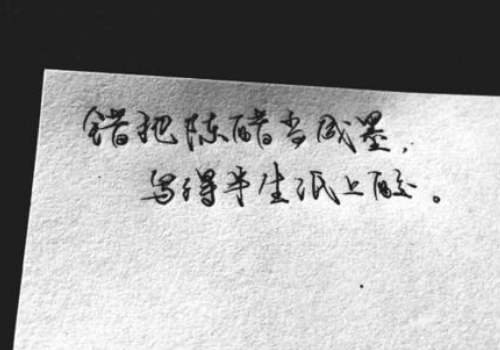 错把陈醋当成墨，
写得半生纸上酸。